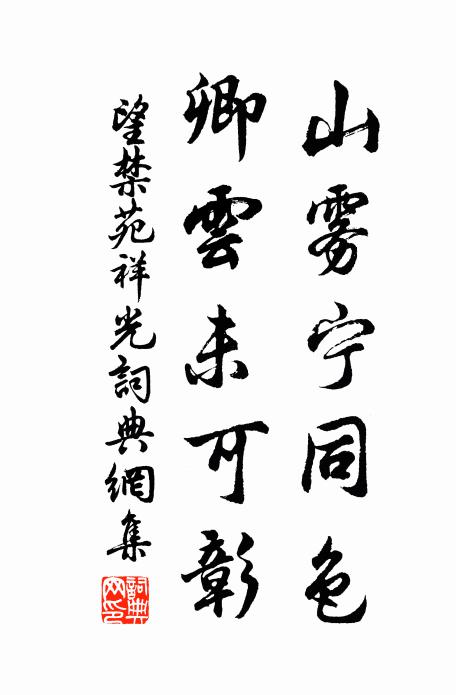 山雾宁同色
卿雲未可彰
望禁苑祥光詞典網集
詞典網印